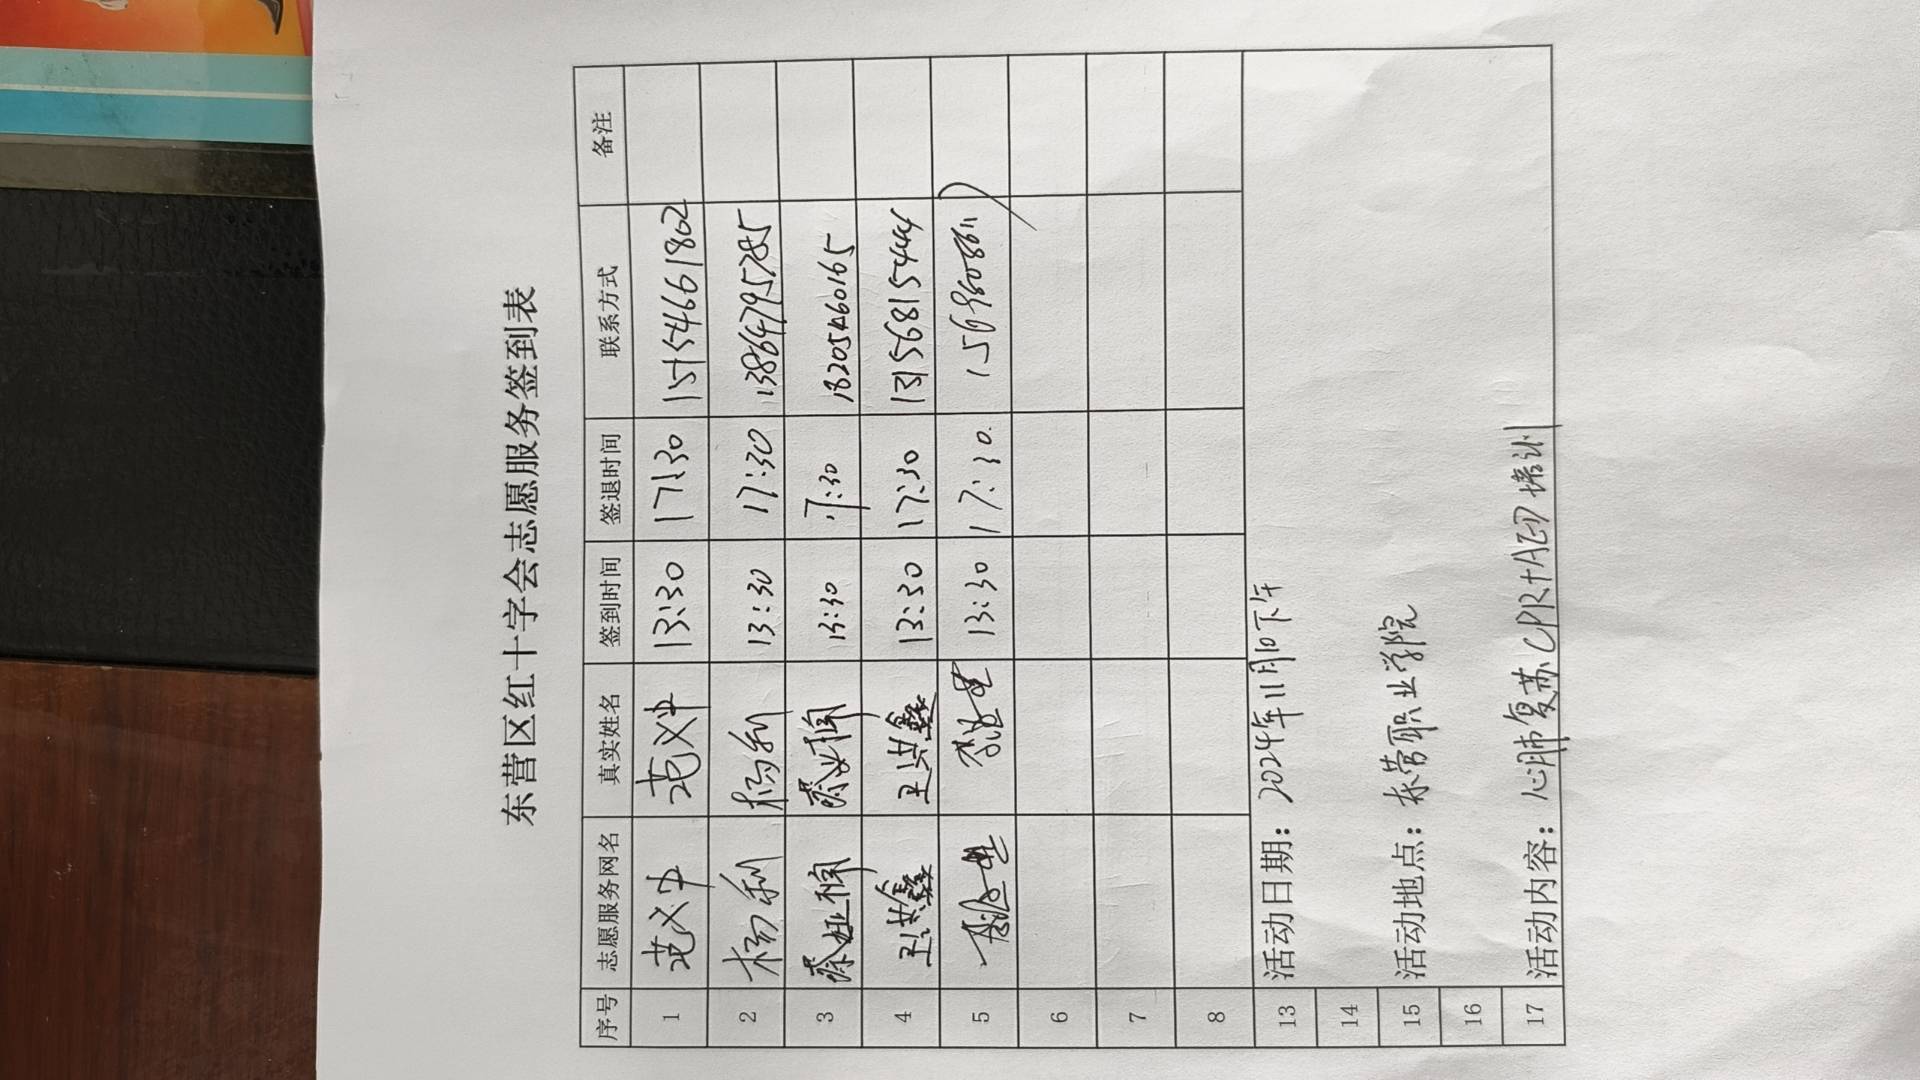 东营区红十字会志愿服务签到表
序号 志愿服务网名 真实姓名 签到时间 签退时间 联系方式 备注
1 范义中 范义中 13:30 17:30 15154661802
2 杨利 杨利 13:30 17:30 13864795285
3 13:30 17:30 18205460165
4 王洪鑫 王洪鑫 13:30 17:30 13156815444
5 13:30 17:30
6
7
8
13 活动日期: 2024年11月10下午
14
15 活动地点: 东营职业学院
16
17 活动内容: 心肺复苏CPR+AED培训